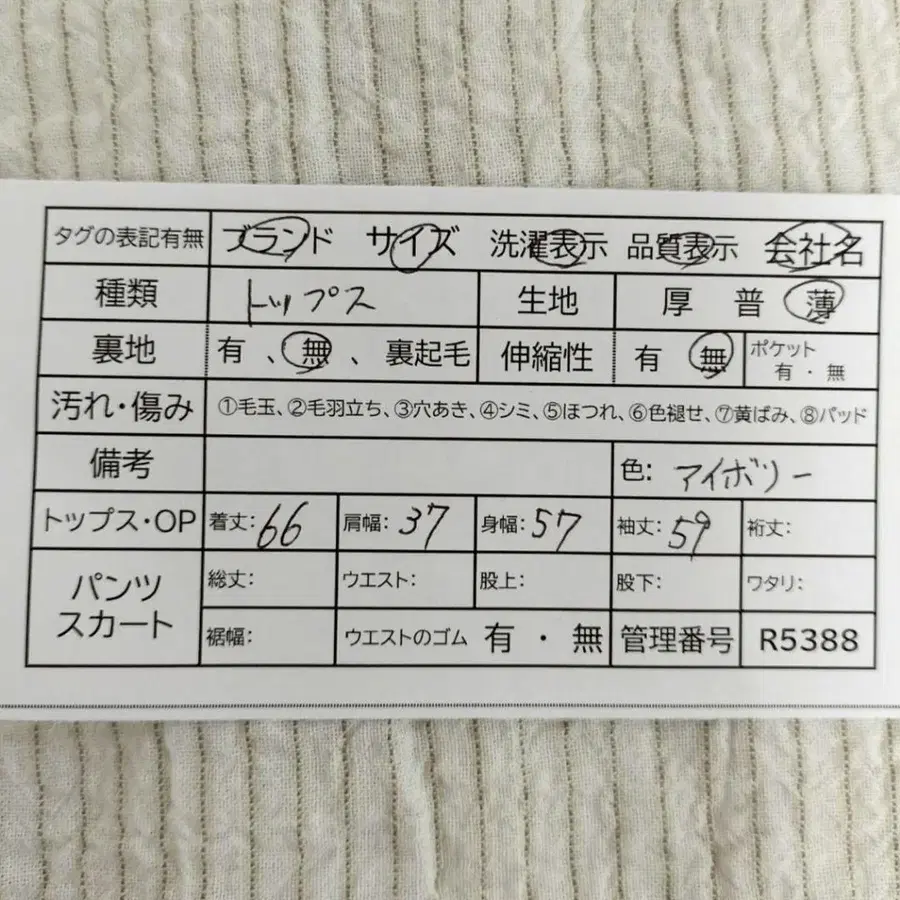 タグの表記有無 ブランド サイズ 洗濯表示 品質表示 会社名
種類 トップス 生地 厚 普 薄
裏地 有 、 無 、 裏起毛 伸縮性 有 無 ポケット 有 ・ 無
汚れ・傷み ①毛玉、②毛羽立ち、③穴あき、④シミ、⑤ほつれ、⑥色褪せ、⑦黄ばみ、⑧パッド
備考 色: アイボリー
トップス・OP 着丈: 66 肩幅: 37 身幅: 57 袖丈: 59 裄丈:
パンツ スカート 総丈: ウエスト: 股上: 股下: ワタリ:
裾幅: ウエストのゴム 有 ・ 無 管理番号 R5388